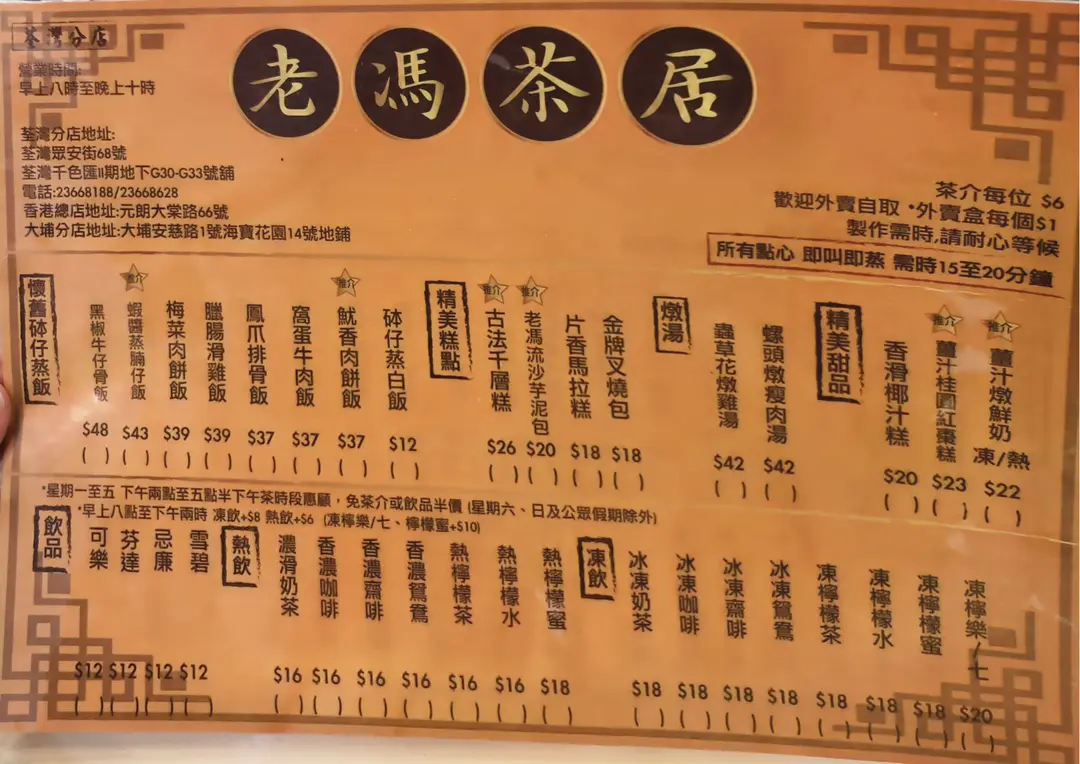 荃灣分店
營業時間:
早上八時至晚上十時
荃灣分店地址:
荃灣眾安街68號
荃灣千色匯II期地下G30-G33號舖
電話:23668188/23668628
香港總店地址:元朗大棠路66號
大埔分店地址:大埔安慈路1號海寶花園14號地鋪
老馮茶居
茶介每位 $6
歡迎外賣自取 •外賣盒每個$1
製作需時,請耐心等候
所有點心 即叫即蒸 需時15至20分鐘
懷舊砵仔蒸飯
黑椒牛仔骨飯 $48 ( )
推介 蝦醬蒸腩仔飯 $43 ( )
梅菜肉餅飯 $39 ( )
臘腸滑雞飯 $39 ( )
鳳爪排骨飯 $37 ( )
窩蛋牛肉飯 $37 ( )
推介 魷香肉餅飯 $37 ( )
砵仔蒸白飯 $12 ( )
精美糕點
推介 古法千層糕 $26 ( )
推介 老馮流沙芋泥包 $20 ( )
片香馬拉糕 $18 ( )
金牌叉燒包 $18 ( )
燉湯
蟲草花燉雞湯 $42 ( )
螺頭燉瘦肉湯 $42 ( )
精美甜品
香滑椰汁糕 $20 ( )
推介 薑汁桂圓紅棗糕 $23 ( )
推介 薑汁燉鮮奶 凍/熱 $22 ( )
*星期一至五 下午兩點至五點半下午茶時段惠顧，免茶介或飲品半價 (星期六、日及公眾假期除外)
*早上八點至下午兩時 凍飲+$8 熱飲+$6 (凍檸樂/七、檸檬蜜+$10)
飲品
可樂 $12 ( )
芬達 $12 ( )
忌廉 $12 ( )
雪碧 $12 ( )
熱飲
濃滑奶茶 $16 ( )
香濃咖啡 $16 ( )
香濃齋啡 $16 ( )
香濃鴛鴦 $16 ( )
熱檸檬茶 $16 ( )
熱檸檬水 $16 ( )
熱檸檬蜜 $18 ( )
凍飲
冰凍奶茶 $18 ( )
冰凍咖啡 $18 ( )
冰凍齋啡 $18 ( )
冰凍鴛鴦 $18 ( )
凍檸檬茶 $18 ( )
凍檸檬水 $18 ( )
凍檸檬蜜 $18 ( )
凍檸樂/七 $20 ( )